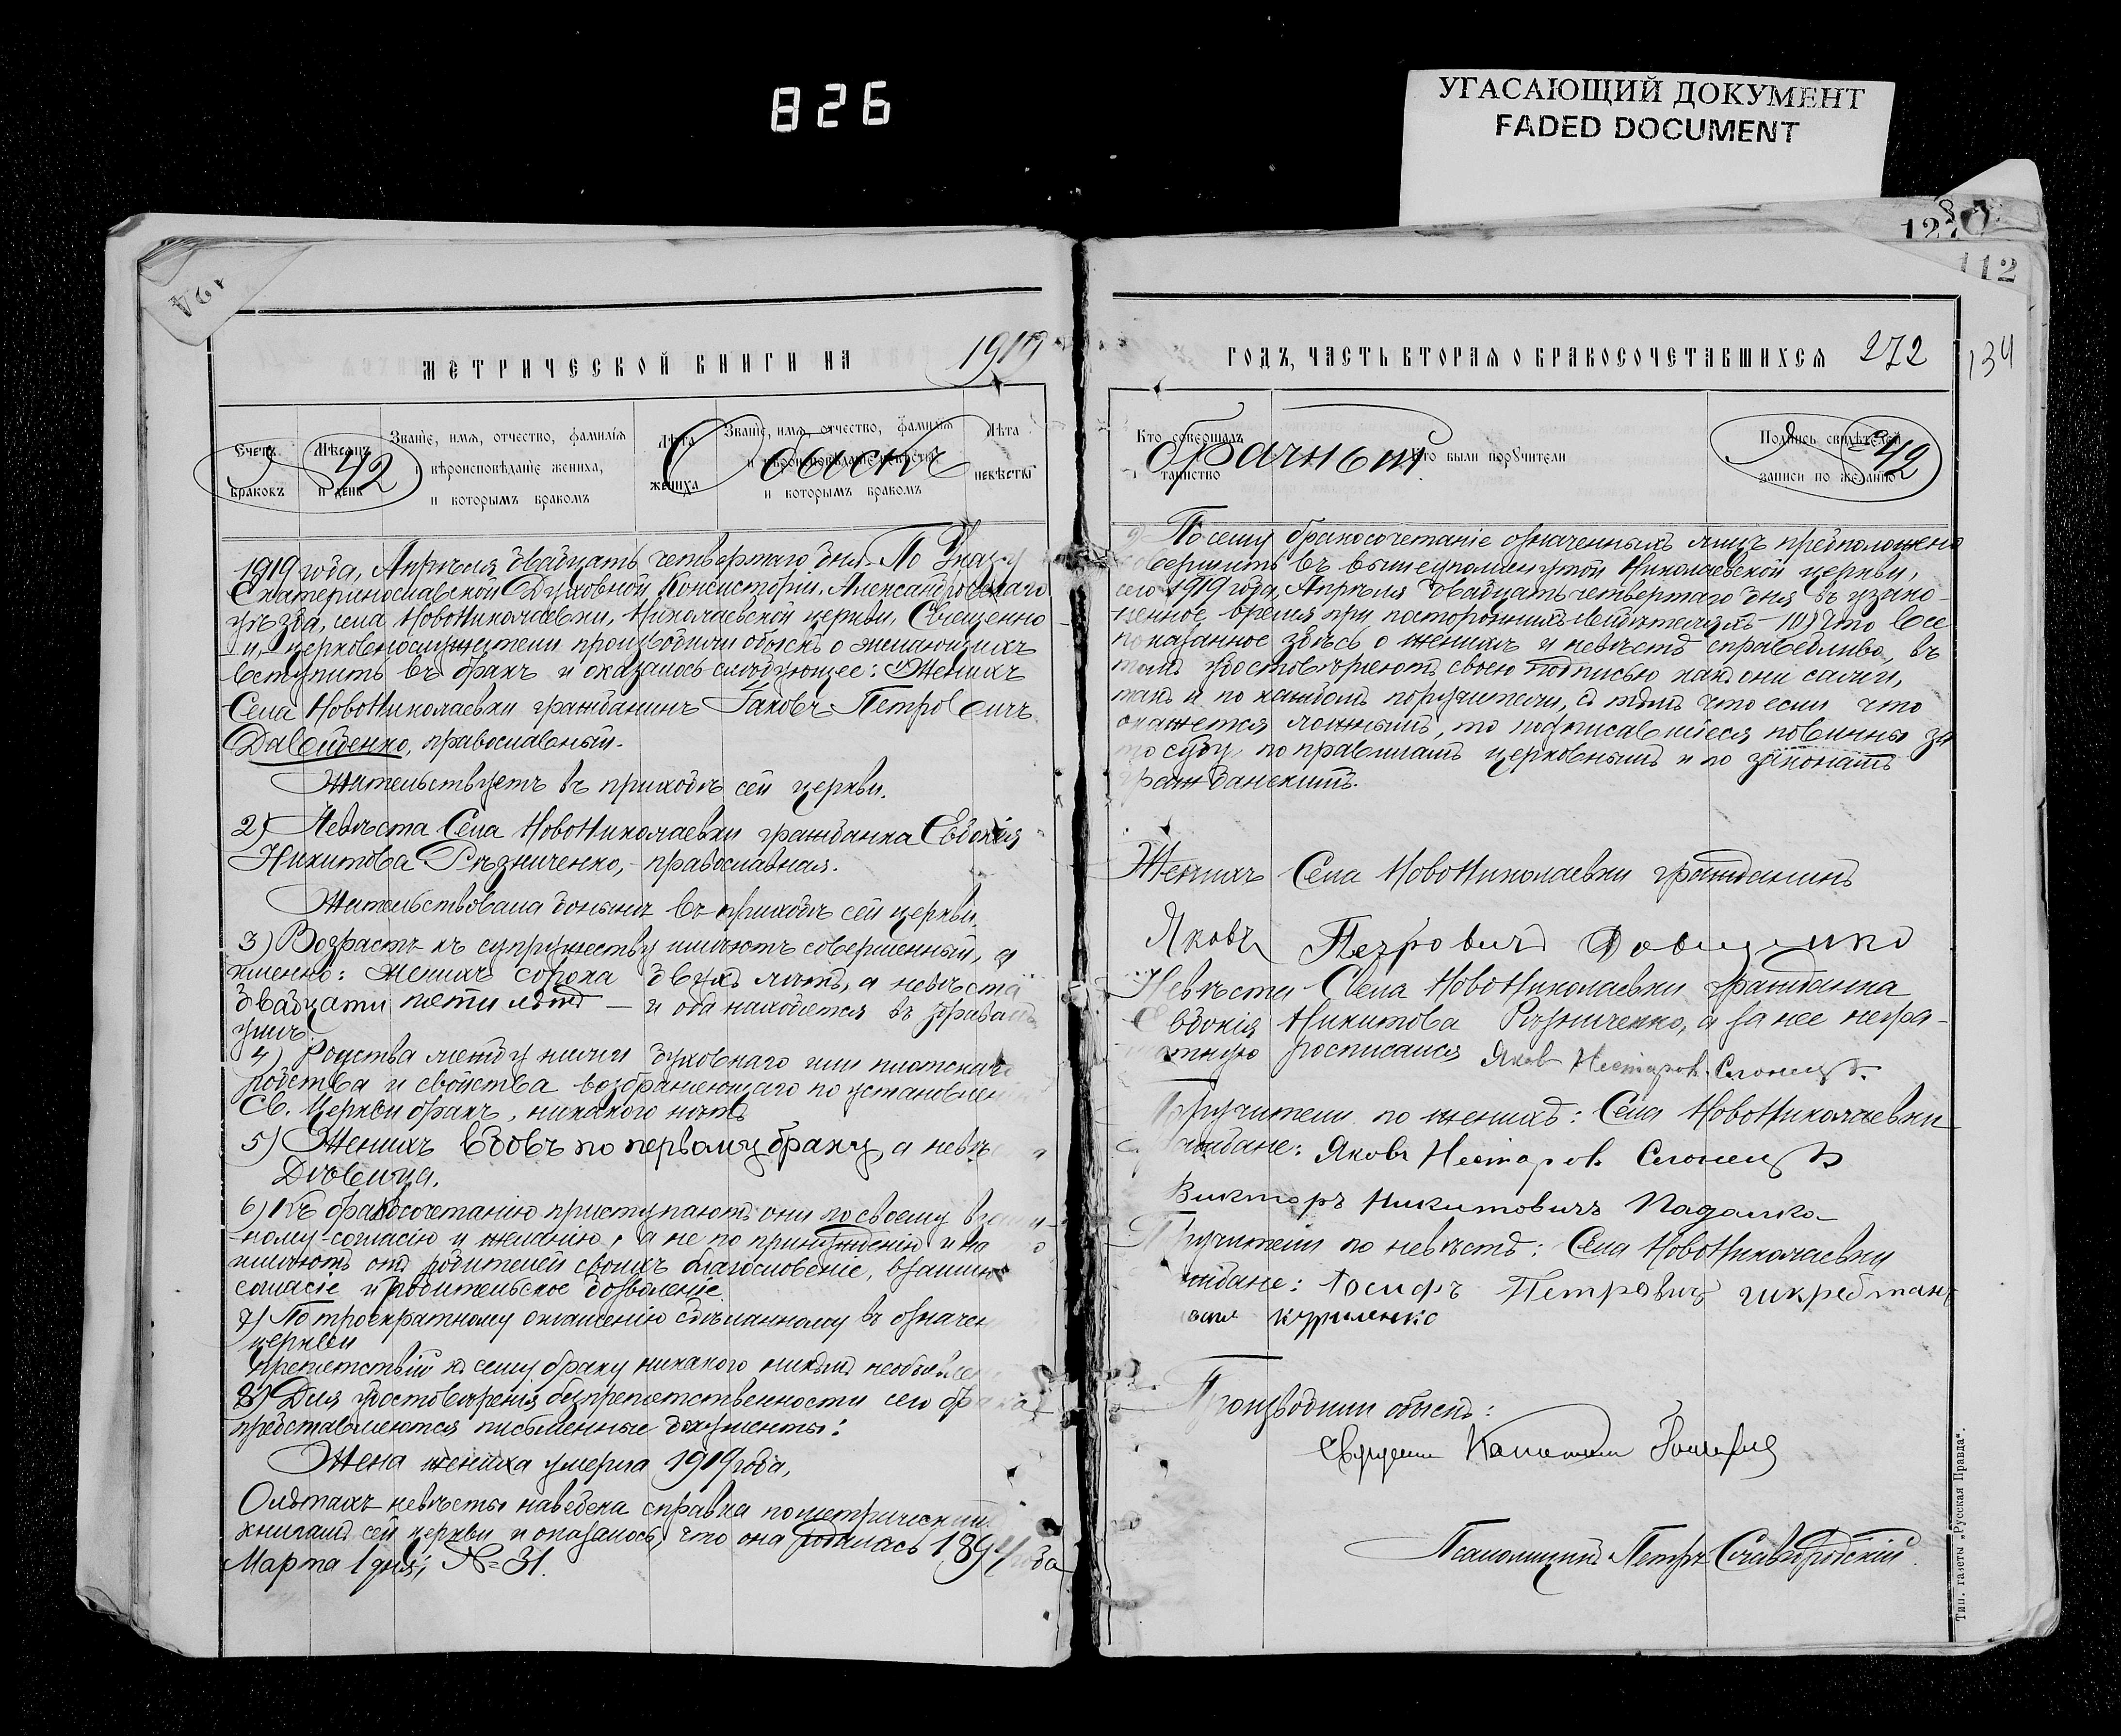 826
УГАСАЮЩИЙ ДОКУМЕНТ
FADED DOCUMENT
127
112
194
МЕТРИЧЕСКОЙ КНИГИ НА 1919
Счетъ браковъ
Мѣсяцъ и день
Званіе, имя, отчество, фамилія и вѣроисповѣданіе жениха, и которымъ бракомъ
Лѣта жениха
Званіе, имя, отчество, фамилія и вѣроисповѣданіе невѣсты и которымъ бракомъ
Лѣта невѣсты
42 Обыскъ
1919 года, Апрѣля двадцать четвертаго дня. По Указу
Екатеринославской Духовной Консисторіи, Александровскаго
уѣзда, села НовоНиколаевки, Николаевской церкви, Священно
и церковнослужители производили обыскъ о желающихъ
вступить въ бракъ и оказалось слѣдующее: Женихъ
Села НовоНиколаевки гражданинъ Іаковъ Петровичъ
Давиденко, православный.
Жительствуетъ въ приходѣ сей церкви.
2) Невѣста Села НовоНиколаевки гражданка Евдокія
Никитова Рѣзниченко, православная.
Жительствовала донынѣ въ приходѣ сей церкви.
3) Возрастъ къ супружеству имѣютъ совершенный, а
именно: женихъ сорока двухъ лѣтъ, а невѣста
двадцати пяти лѣтъ — и оба находятся въ здравомъ
умѣ.
4) Родства между ними духовнаго или плотскаго
родства и свойства возбраняющаго по установленію
Св. Церкви бракъ, никакого нѣтъ
5) Женихъ вдовъ по первому браку, а невѣста
Дѣвица.
6) Къ бракосочетанію приступаютъ они по своему взаим-
ному согласію и желанію, а не по принужденію и на
имѣютъ отъ родителей своихъ благословеніе, взаимное
согласіе и родительское дозволеніе.
7) По троекратному оглашенію сдѣланному въ означен
церкви
препятствій къ сему браку никакого никѣмъ необъявлено
8) Для удостовѣренія безпрепятственности сего брака
представляются письменные документы:
Жена жениха умерла 1919 года,
О лѣтахъ невѣсты наведена справка по метрическимъ
книгамъ сей церкви и оказалось, что она родилась 1894 года
Марта 1 дня; № 31.
ГОДЪ, ЧАСТЬ ВТОРАЯ О БРАКОСОЧЕТАВШИХСЯ 272
134
Кто совершалъ таинство
Кто были поручители
Подпись свидѣтелей записи по желанію
брачный № 42
9) По сему бракосочетаніе означенныхъ лицъ предположено
совершить въ вышеупомянутой Николаевской церкви,
сего 1919 года, Апрѣля двадцать четвертаго дня въ узако-
ненное время при постороннихъ свидѣтеляхъ 10) Что все
показанное здѣсь о женихѣ и невѣстѣ справедливо, въ
томъ удостовѣряютъ своею подписью какъ они сами,
такъ и по каждомъ поручители, съ тѣмъ что если что
окажется ложнымъ, то подписавшіеся повинны за
то суду по правиламъ церковнымъ и по законамъ
гражданскимъ.
Женихъ Села НовоНиколаевки гражданинъ
Яковъ Петровичъ
Невѣста Села НовоНиколаевки гражданка
Евдокія Никитова Рѣзниченко, а за нее негра-
мотную росписался Яков Несторов.
Поручители по женихѣ: Села НовоНиколаевки
граждане: Яковъ Несторов.
Викторъ Никитовичъ Падалко
Поручители по невѣстѣ: Села НовоНиколаевки
граждане: Іосифъ Петровичъ
куриленко
Производили обыскъ:
Псаломщикъ Петръ
Тип. газеты „Русская Правда“.